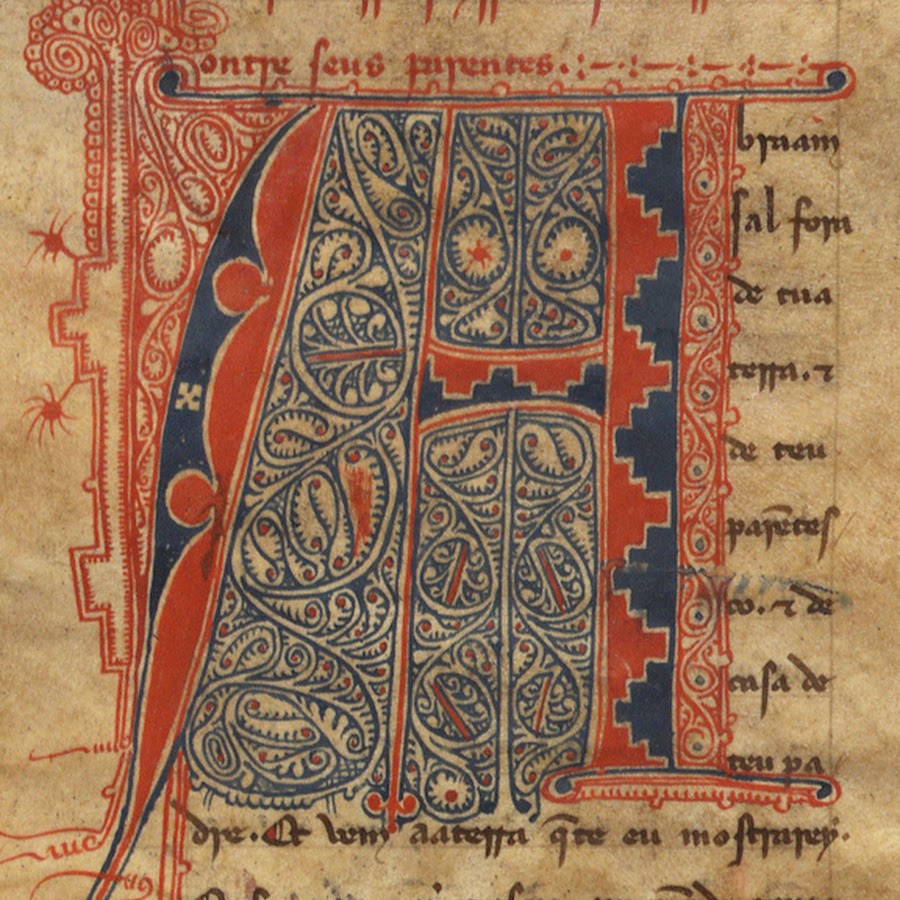 Contre seus parentes.
A braam
sal fora
de tua
terra. ⁊
de teu
parẽtes
co. ⁊ de
casa de
teu pa
dre. Et vem aaterra q̃te eu mostrarey.